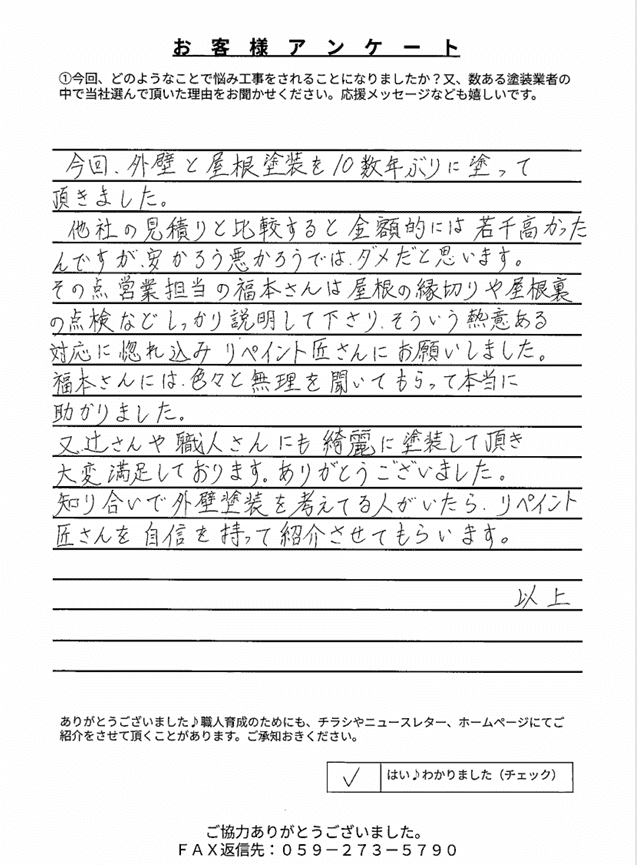 お客様アンケート
①今回、どのようなことで悩み工事をされることになりましたか？又、数ある塗装業者の
中で当社選んで頂いた理由をお聞かせください。応援メッセージなども嬉しいです。
今回、外壁と屋根塗装を10数年ぶりに塗って
頂きました。
他社の見積りと比較すると金額的には若干高かった
んですが、安かろう悪かろうでは、ダメだと思います。
その点営業担当の福本さんは屋根の縁切りや屋根裏
の点検などしっかり説明して下さり、そういう熱意ある
対応に惚れ込みリペイント匠さんにお願いしました。
福本さんには、色々と無理を聞いてもらって本当に
助かりました。
又、辻さんや職人さんにも綺麗に塗装して頂き
大変満足しております。ありがとうございました。
知り合いで外壁塗装を考えてる人がいたら、リペイント
匠さんを自信を持って紹介させてもらいます。
以上
ありがとうございました♪職人育成のためにも、チラシやニュースレター、ホームページにてご
紹介をさせて頂くことがあります。ご承知おきください。
✓ はい♪わかりました（チェック）
ご協力ありがとうございました。
ＦＡＸ返信先：０５９－２７３－５７９０